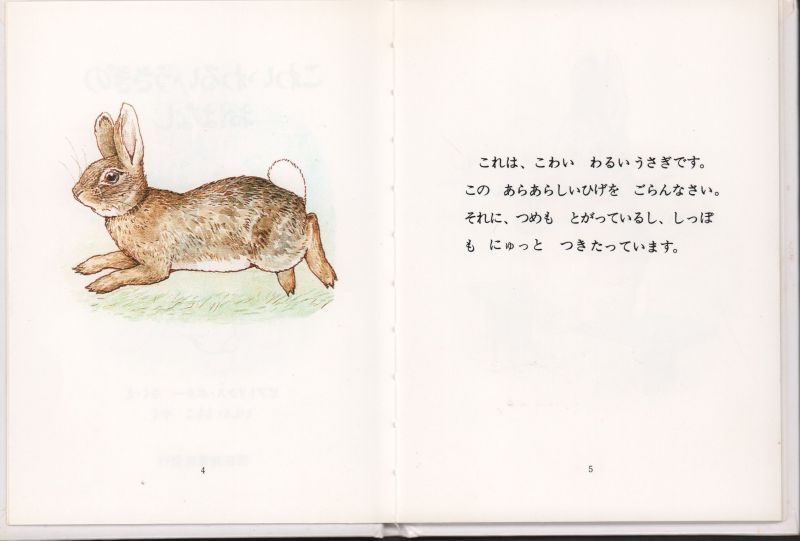 これは、こわい　わるいうさぎです。
この　あらあらしいひげを　ごらんなさい。
それに、つめも　とがっているし、しっぽ
も　にゅっと　つきたっています。
4
5